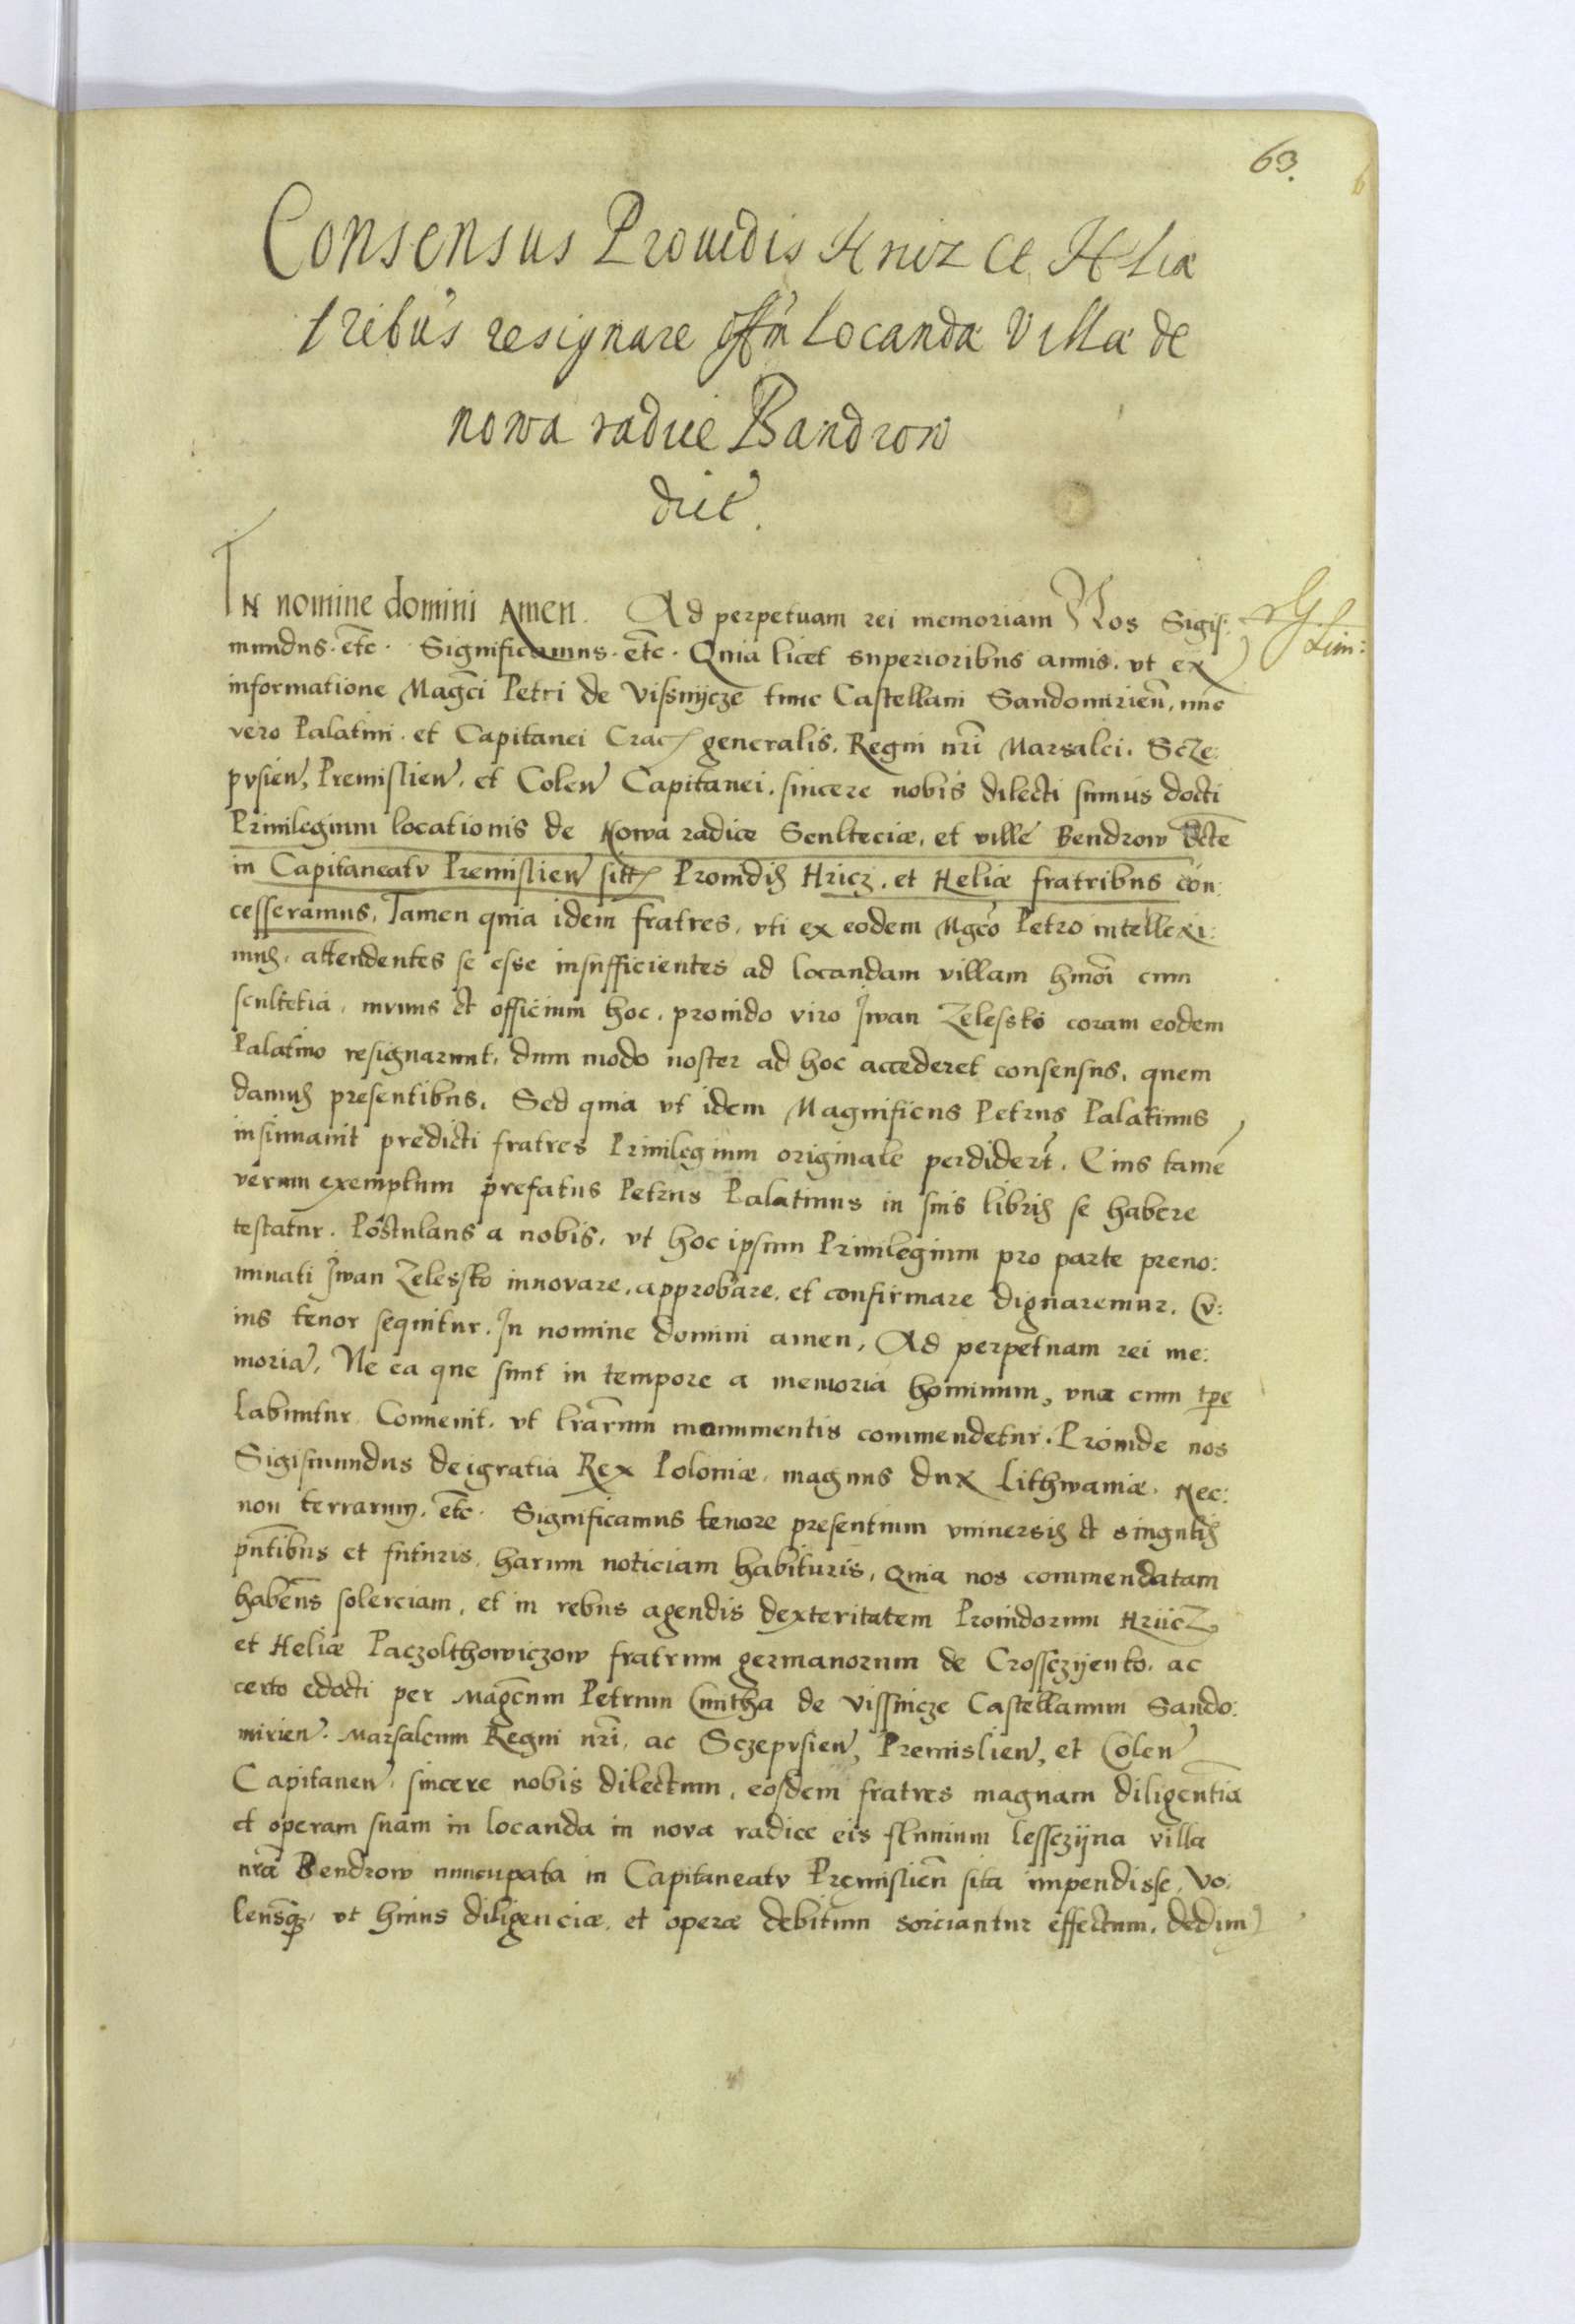 63.
Consensus Prouidis Hriz et Helia
fribus resignare offm Locanda Villa de
nowa radice Bandrow
dict.
In nomine domini Amen. Ad perpetuam rei memoriam Nos Sigis:
mundus. etc. Significamus. etc. Quia licet superioribus annis. vt ex
informatione Magci Petri de Vissnycze tunc Castellani Sandomirien, nunc
vero Palatini. et Capitanei Crac generalis. Regni nri Marsalci. Scze:
pusien, Premislien. et Colen Capitanei. sincere nobis dilecti sumus docti
Priuilegium locationis de Nowa radice Scultecie, et ville Bendrow dcte
in Capitaneatu Premislien sitt Prouidis Hricz. et Heliæ fratribus con:
cesseramus, Tamen quia idem fratres, vti ex eodem Mgco Petro intellexi:
mus, attendentes se esse insufficientes ad locandam villam hmoi cum
scultetia, munus et officium hoc. prouido viro Jwan Zelessko coram eodem
Palatino resignarunt, dum modo noster ad hoc accederet consensus, quem
damus presentibus. Sed quia vt idem Magnificus Petrus Palatinus
insinuauit predicti fratres Priuilegium originale perdidert. Eius tame
verum exemplum prefatus Petrus Palatinus in suis libris se habere
testatur. Postulans a nobis, vt hoc ipsum Priuilegium pro parte preno:
minati Jwan Zelessko innovare, approbare, et confirmare dignaremur. Cu:
ius tenor sequitur. In nomine domini amen, Ad perpetuam rei me:
moria. Ne ea que sunt in tempore a memoria hominum, vna cum tpe
labuntur Conuenit. vt lrarum monummentis commendetur. Proinde nos
Sigismundus dei gratia Rex Poloniæ, magnus dux Lithwaniæ. Nec:
non terrarum, etc. Significamus tenore presentium vniuersis et singulis
pntibus et futuris, harum noticiam habituris, Quia nos commendatam
habens solerciam, et in rebus agendis dexteritatem Prouidorum Hriicz
et Heliæ Paczolthowiczow fratrum germanorum de Crossczyenko, ac
certo edocti per Magcum Petrum Cmitha de Vissnicze Castellanum Sando:
mirien. Marsalcum Regni nri, ac Sczepusien, Premislien, et Colen
Capitaneu, sincere nobis dilectum, eosdem fratres magnam diligentia
et operam suam in locanda in nova radice eis fluuium Lessczyna villa
nra Bendrow nuncupata in Capitaneatu Premislien sita impendisse, Vo:
lensq, vt huius diligenciæ, et operæ debitum sorciantur effectum, dedim